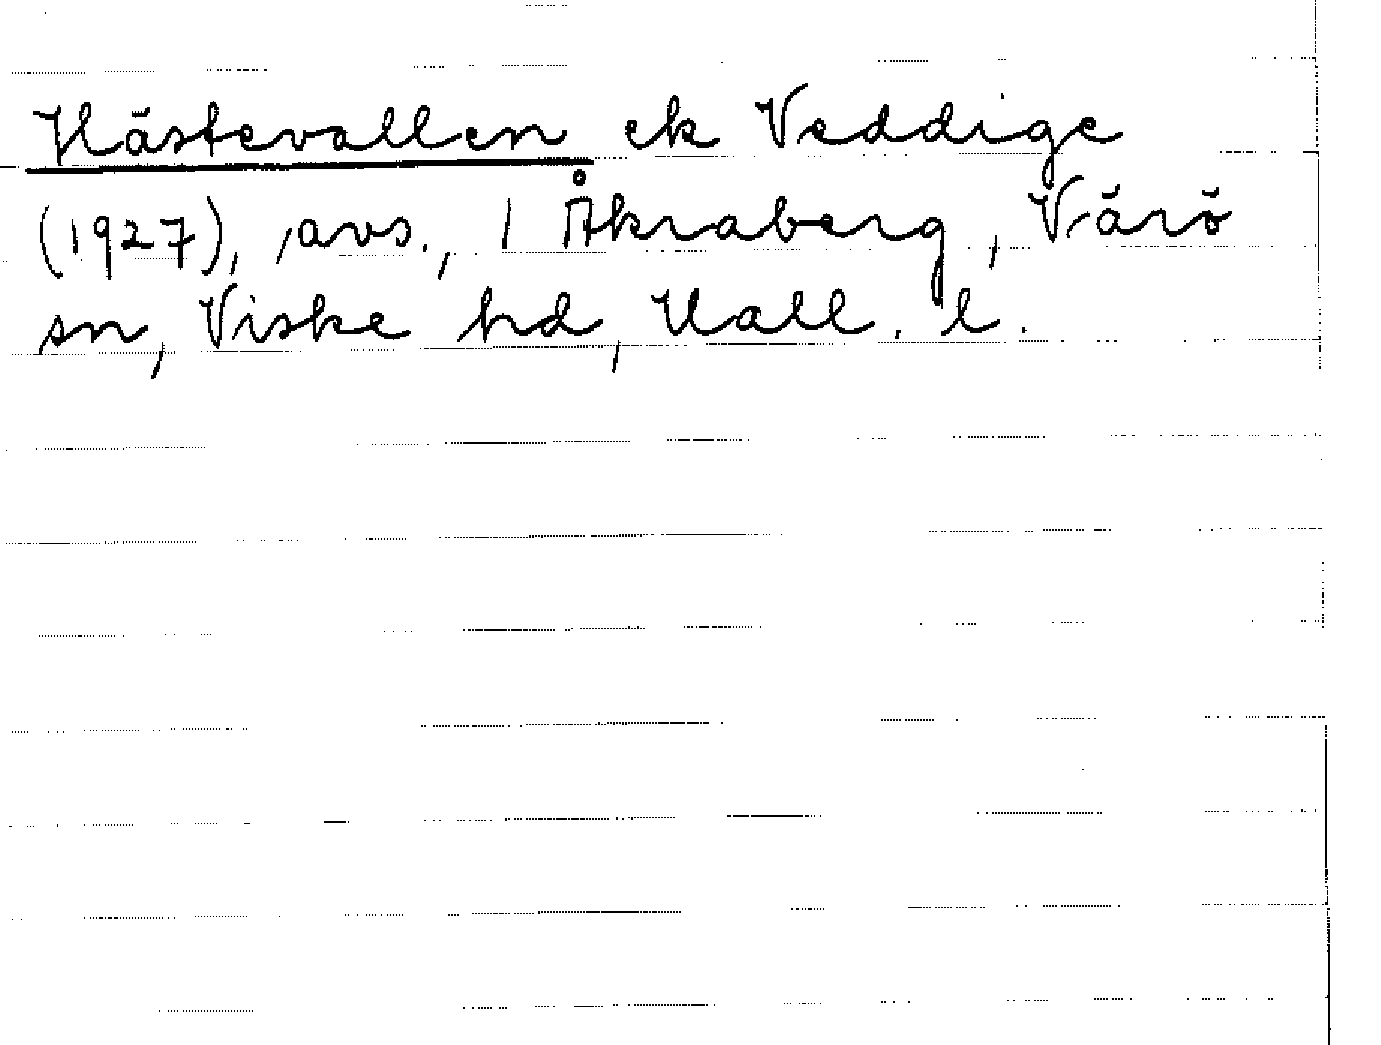 Hästevallen ek Veddige
(1927), avs., 1 Åkraberg, Värö
sn, Viske hd, Hall. l.